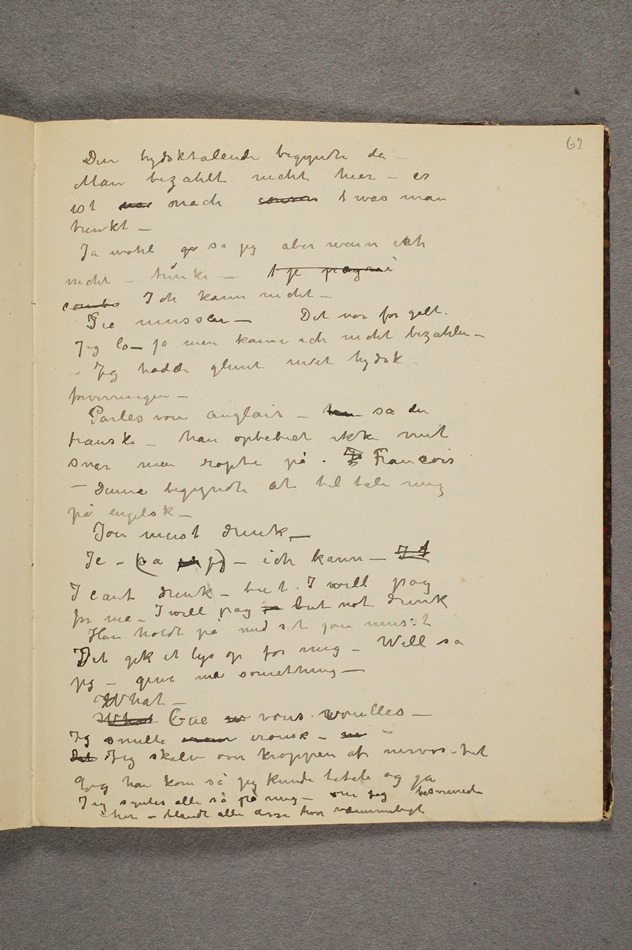 62
Den tydsktalende begyndte da –
Man bezahlt nicht hier – es
ist nach was man
trinkt –
Ja wohl sa jeg aber wenn ich
nicht – trinke –
Ich kann nicht –
Sie mussen – Det var for galt.
Jeg lo – ja men kann ich nicht bezahlen –
– Jeg hadde glemt mit tydsk
forvirringen –
Parles vou anglais – sa den
franske – han opbebiet ikke mit
svar men ropte på . Francois
– Denne begyndte at til tale mig
på engelsk –
You must drink –
Je – (sa jeg) – ich kann –
I cant drink – but I will pay
for me – I will pay – but not drink
Han holdt på med at you must
Det gik et lys op for mig – Well sa
jeg – give me something –
What –
Que vous voulles –
Jeg smilte ironisk –
Jeg skalv over kroppen af nervøs-tet
og han kom så jeg kunde betale og gå
Jeg syntes alle så på mig – om jeg besvimede
her – blandt alle disse hvor væmmeligt